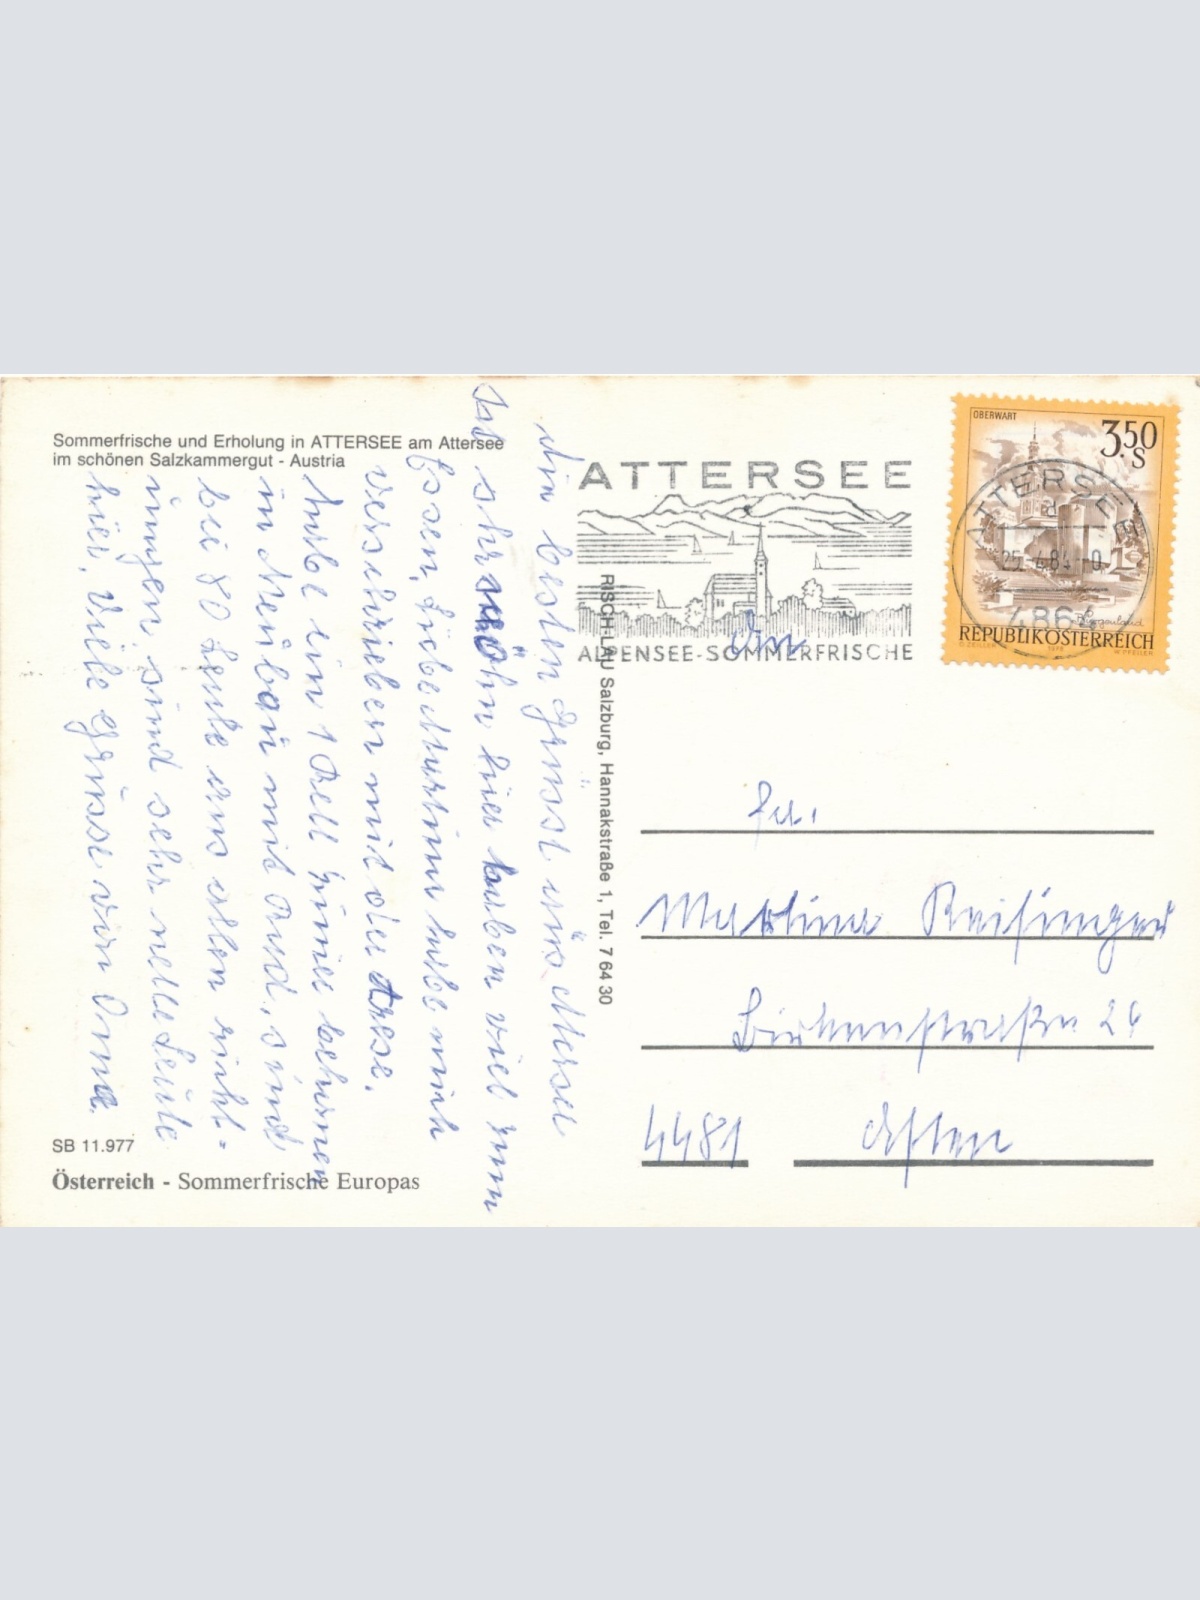 Sommerfrische und Erholung in ATTERSEE am Attersee
im schönen Salzkammergut - Austria
Die besten Grüsse aus Attersee
Ist sehr schön hier haben viel zum
Essen, Liebe Martina habe mich
verschrieben mit der Adresse.
habe ein 1 Bett Zimmer bekommen
in Neubau mit Bad, sind
bei 80 Leute aus allen richt-
ungen sind sehr nette Leute
hier. Viele Grüsse von Oma
SB 11.977
Österreich - Sommerfrische Europas
RISCH-LAU Salzburg, Hannakstraße 1, Tel. 7 64 30
ATTERSEE
ALPENSEE-SOMMERFRISCHE
ATTERSEE
25.4.84-0
4864
OBERWART
3.50
S
Burgenland
REPUBLIK ÖSTERREICH
O. ZEILLER 1978 W. PFEILER
An
Frl.
Martina Reisinger
Birkenstraße 24
4481 Asten